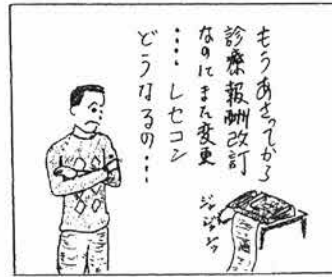 もうあさってから
診療報酬改訂
なのにまた変更
・・・・レセコン
どうなるの・・・
ジャジャジャ